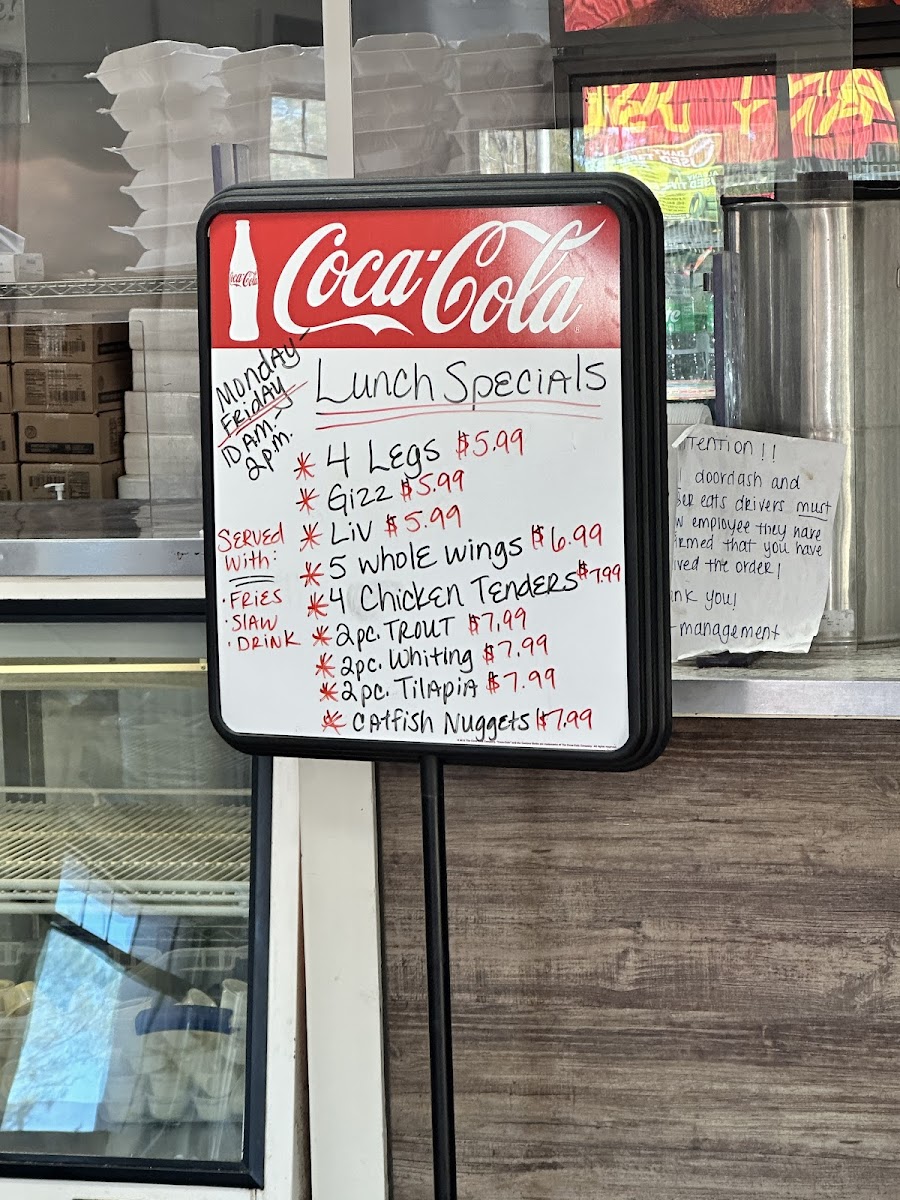 Coca-Cola
Coca-Cola
Monday-
Friday
10 AM-
2 p.m.
Lunch Specials
* 4 Legs $5.99
* Gizz $5.99
* Liv $5.99
* 5 whole wings $6.99
* 4 Chicken Tenders $7.99
* 2pc. Trout $7.99
* 2pc. Whiting $7.99
* 2pc. Tilapia $7.99
* Catfish Nuggets $7.99
Served
With:
· Fries
· Slaw
· Drink
tention!!
doordash and
eats drivers must
employee they have
that you have
the order!
you!
-management